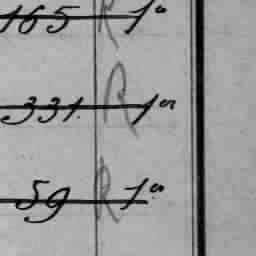 165 R 1a
331. R 1a
59 R 1a